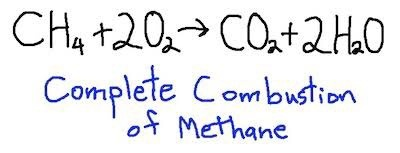 CH₄+2O₂→CO₂+2H₂O
Complete Combustion
of Methane